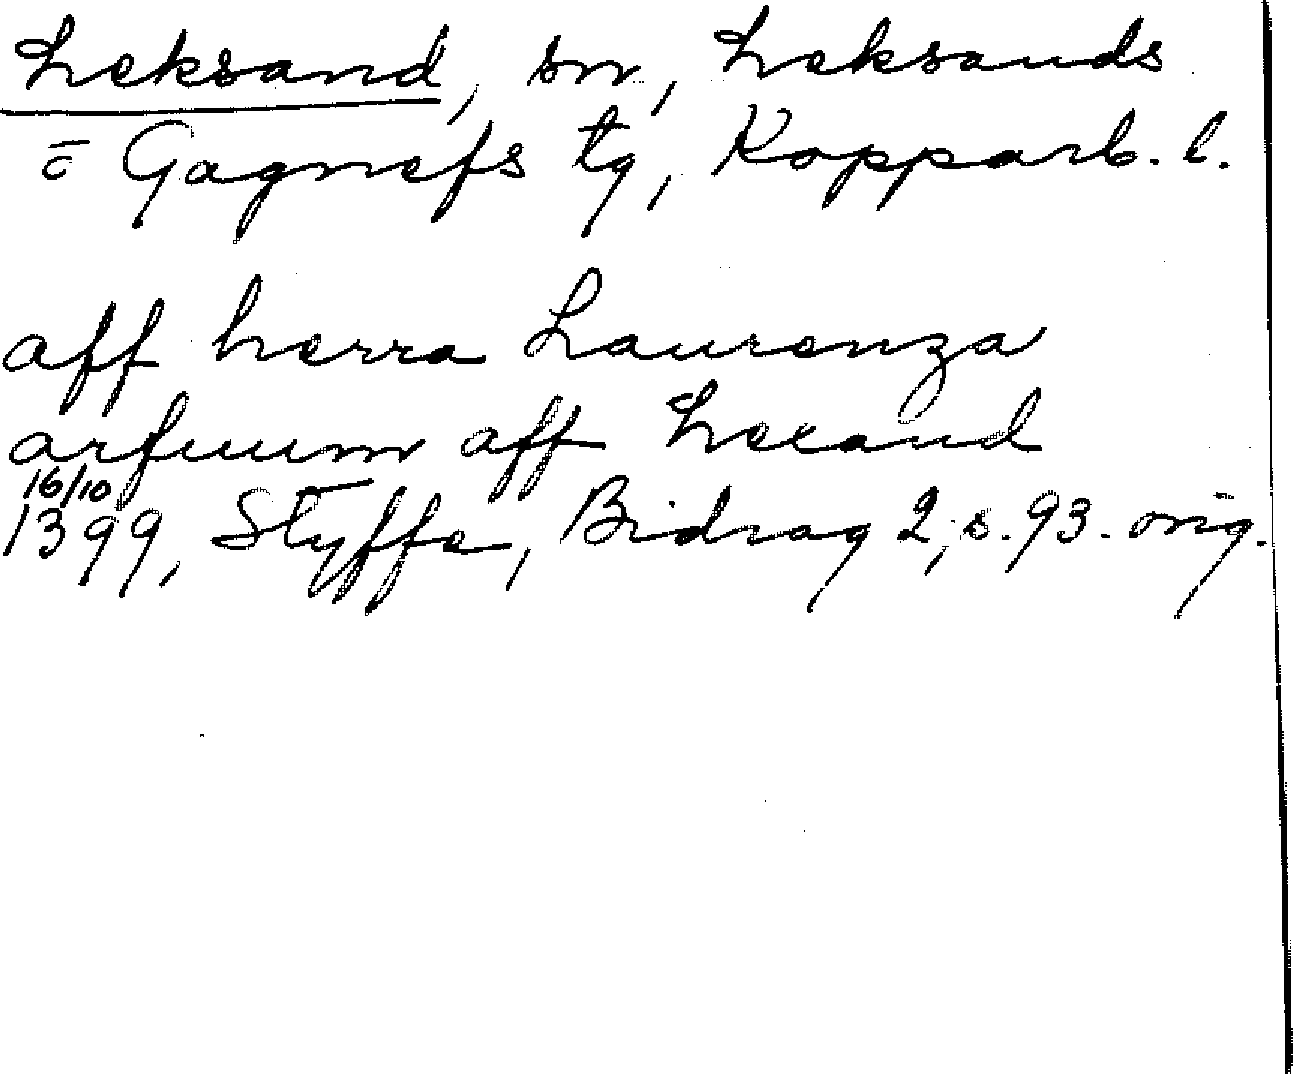 Leksand, sn, Leksands
o Gagnefs tg, Kopparb. l.
aff herra Laurenza
arfuum aff Lexand
16/10
1399, Styffe, Bidrag 2, s. 93. orig.